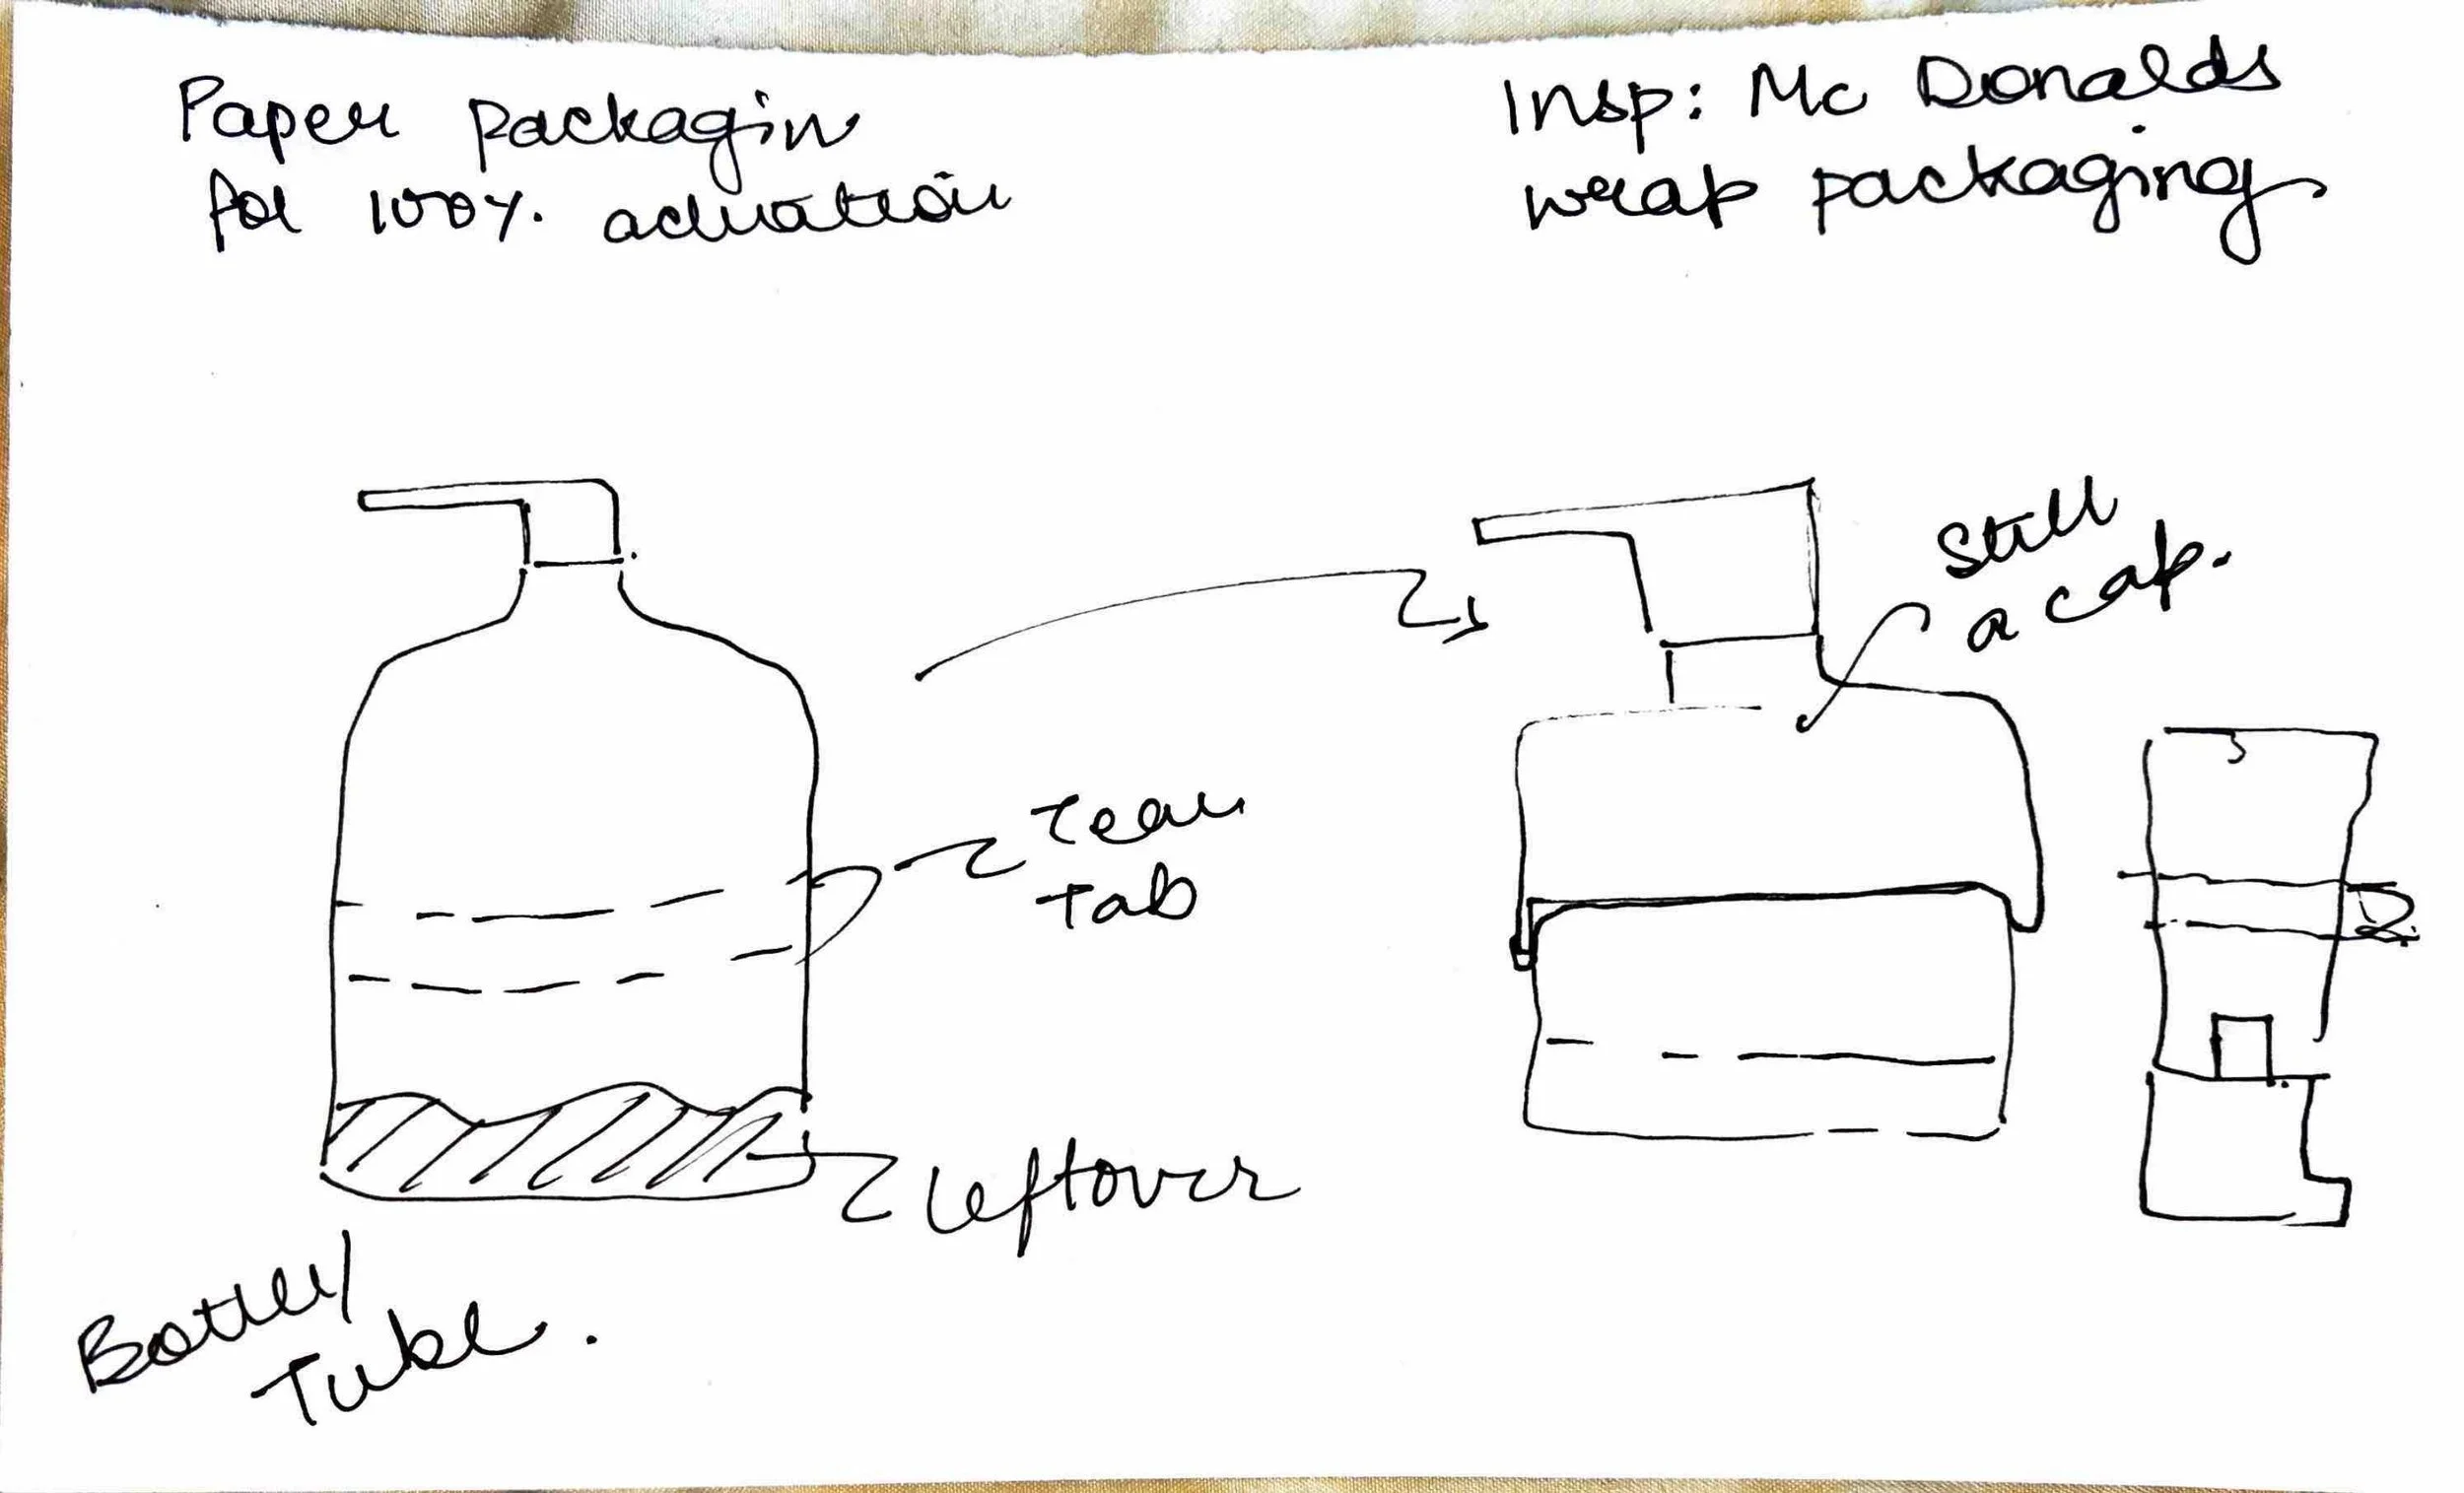 Paper packagin
for 100% actuation
Insp: Mc Donalds
wrap packaging
Still
a cap.
Tear
Tab
Leftover
Bottle/
Tube.